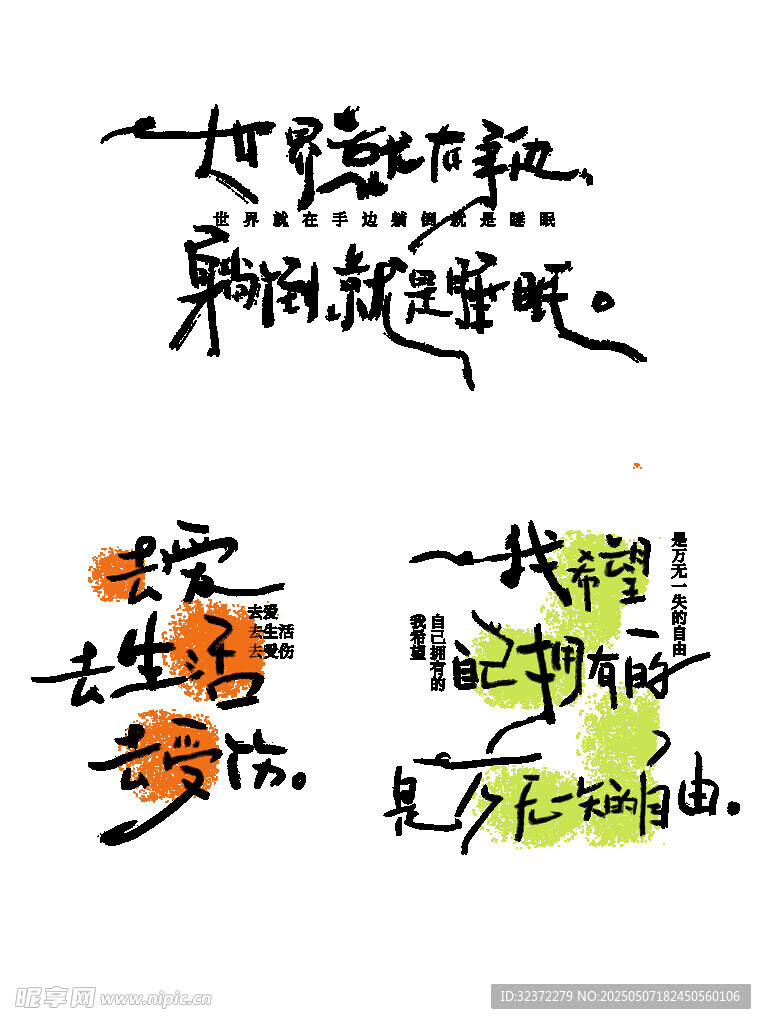 世界就在手边、
世界就在手边躺倒就是睡眠
躺倒就是睡眠。
去爱
去生活
去受伤。
去爱
去生活
去受伤
我希望
自己拥有的
是万无一失的自由。
我希望
自己拥有的
是万无一失的自由
昵享网 www.nipic.cn
ID:32372279 NO:20250507182450560106